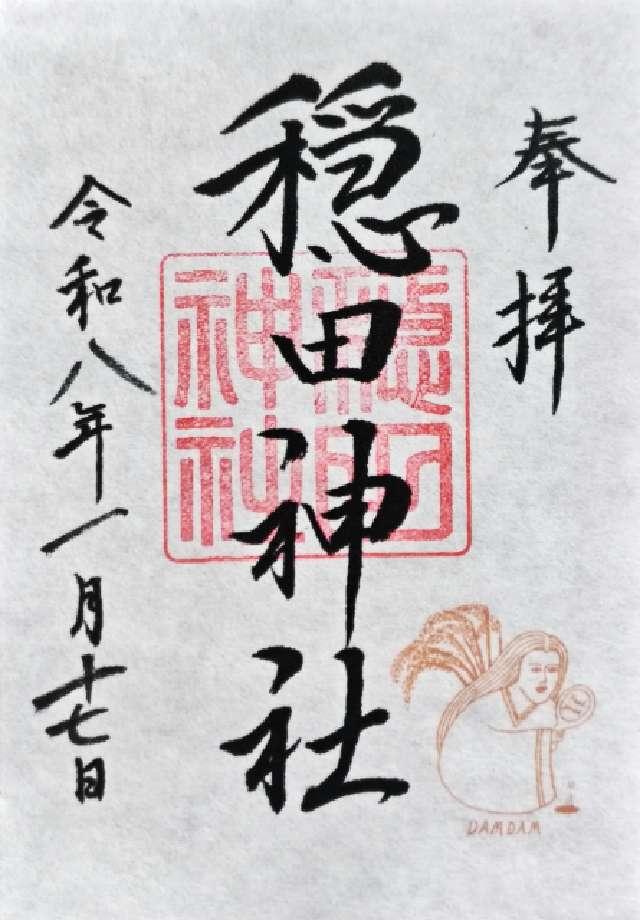 奉拝
穏田神社
令和八年一月十七日
穏田
神社
DAMDAM